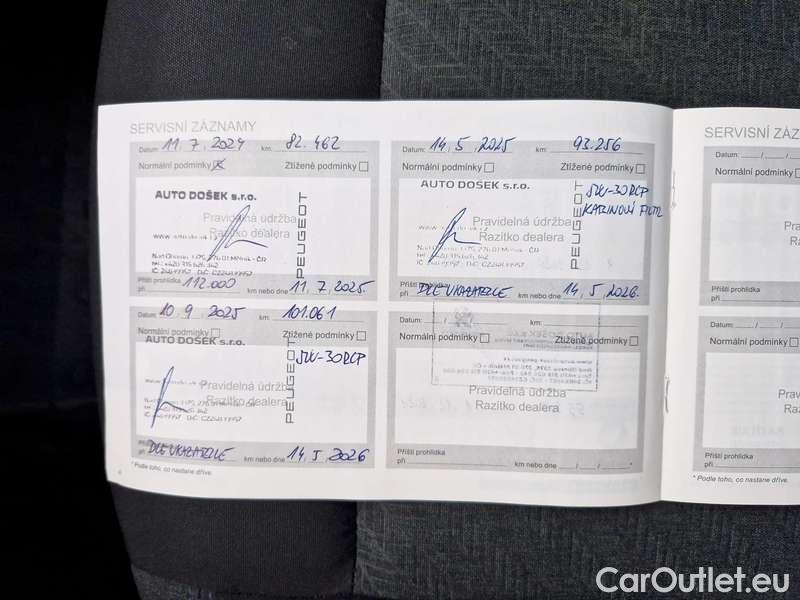 SERVISNÍ ZÁZNAMY
Datum: 11.7.2024 km: 82.462
Normální podmínky Ztížené podmínky
AUTO DOŠEK s.r.o.
PEUGEOT
Pravidelná údržba
Razítko dealera
Příští prohlídka
při 112.000 km nebo dne 11.7.2025.
Datum: 14.5.2025 km: 93.256
Normální podmínky Ztížené podmínky
AUTO DOŠEK s.r.o.
PEUGEOT
5W-30RCP
KABINOVÝ FILTR
Pravidelná údržba
Razítko dealera
Příští prohlídka
při DLE UKAZATELE km nebo dne 14.5.2026.
Datum: 10.9.2025 km: 101.061
Normální podmínky Ztížené podmínky
AUTO DOŠEK s.r.o.
PEUGEOT
5W-30RCP
Pravidelná údržba
Razítko dealera
Příští prohlídka
při DLE UKAZATELE km nebo dne 14.5.2026
Datum: / / km:
Normální podmínky Ztížené podmínky
Pravidelná údržba
Razítko dealera
Příští prohlídka
při km nebo dne / / *
* Podle toho, co nastane dříve.
SERVISNÍ ZÁZ
Datum: / /
Normální podmínky
Pra
Ra
Příští prohlídka
při
Datum: / /
Normální podmínky
Pra
Ra
Příští prohlídka
při
* Podle toho, co nastane dříve.
CarOutlet.eu